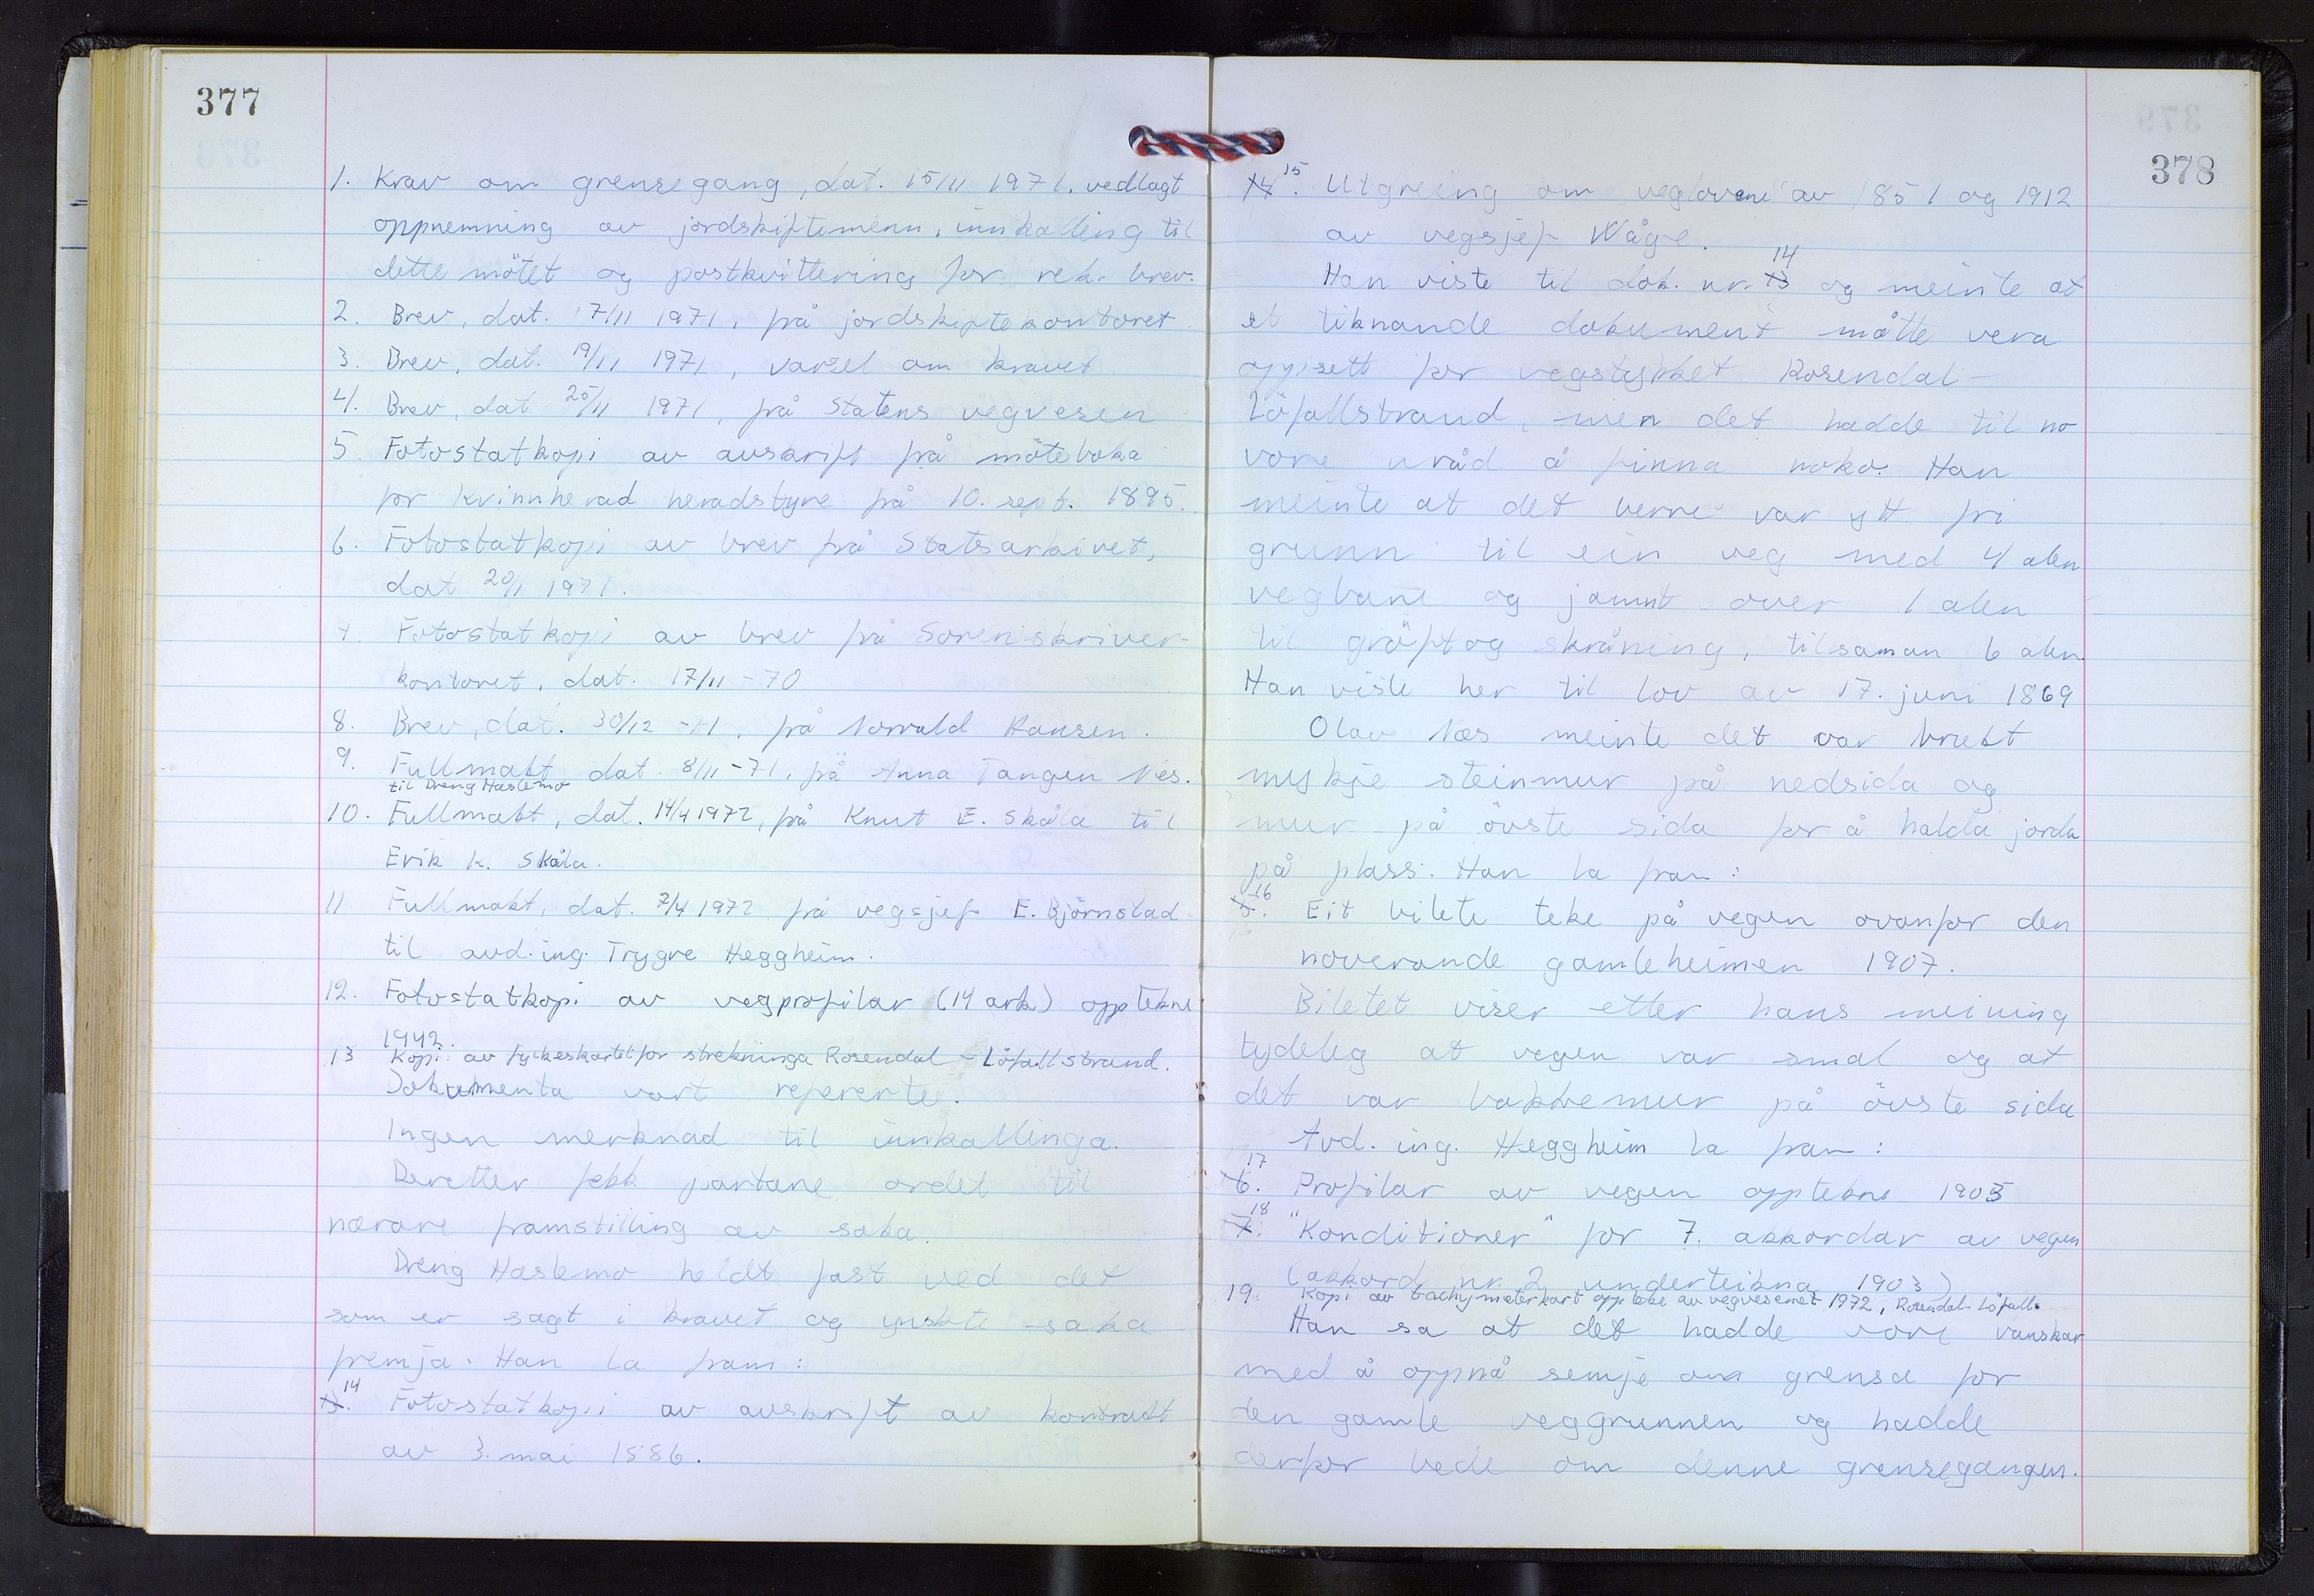 377
1. Krav om grensegang, dat. 15/11 1971, vedlagt
oppnemning av jordskiftemenn, innkalling til
dette møtet og postkvittering for rek. brev.
2. Brev, dat. 17/11 1971, frå jordskiftekontoret
3. Brev, dat. 19/11 1971, varsel om kravet
4. Brev, dat 25/11 1971, frå Statens vegvesen
5. Fotostatkopi av avskrift frå møteboka
for Kvinnherad heradstyre frå 10. sept. 1895.
6. Fotostatkopi av brev frå Statsarkivet,
dat 20/1 1971.
7. Fotostatkopi av brev frå Sorenskriver-
kontoret, dat. 17/11 - 70
8. Brev, dat. 30/12 -71, frå Norvald Hansen.
9. Fullmakt dat. 8/11 - 71, frå Anna Tangen Nes.
til Dreng Haslemo
10. Fullmakt, dat. 14/4 1972, frå Knut E. Skåla til
Erik K. Skåla.
11 Fullmakt, dat. 7/4 1972 frå vegsjef E. Björnstad
til avd.ing. Trygve Heggheim.
12. Fotostatkopi av vegprofilar (14 ark) opptekne
1942.
13 Kopi av fylkeskartet for strekninga Rosendal - Löfallstrand.
Dokumenta vart refererte.
Ingen merknad til innkallinga.
Deretter fekk partane ordet til
nærare framstilling av saka.
Dreng Haslemo heldt fast ved det
som er sagt i kravet og ynskte saka
fremja. Han la fram:
13. 14 Fotostatkopi av avskrift av kontrakt
av 3. mai 1886.
378
14. 15 Utgreiing om veglovene av 1851 og 1912
av vegsjef Wåge.
Han viste til dok. nr. 13 14 og meinte at
et liknande dokument måtte vera
oppsett for vegstykket Rosendal -
Löfallstrand, men det hadde til no
vore uråd å finna noko. Han
meinte at det berre var ytt fri
grunn til ein veg med 4 alen
vegbane og jamnt over 1 alen
til gröft og skråning, tilsaman 6 alen.
Han viste her til lov av 17. juni 1869
Olav Næs meinte det var brukt
mykje steinmur på nedsida og
mur på övste sida for å halda jorda
på plass. Han la fram:
5. 16 Eit bilete teke på vegen ovanfor den
noverande gamleheimen 1907.
Biletet viser etter hans meining
tydeleg at vegen var smal og at
det var bakkemur på övste sida
Avd. ing. Heggheim la fram:
6. 17 Profilar av vegen opptekne 1905
7. 18 "Konditioner" for 7. akkordar av vegen
(akkord nr. 2 underteikna 1903)
19. Kopi av tachymeterkart oppteke av vegvesenet 1972, Rosendal-Löfall.
Han sa at det hadde vore vanskar
med å oppnå semje om grensa for
den gamle veggrunnen og hadde
derfor bede om denne grensegangen.